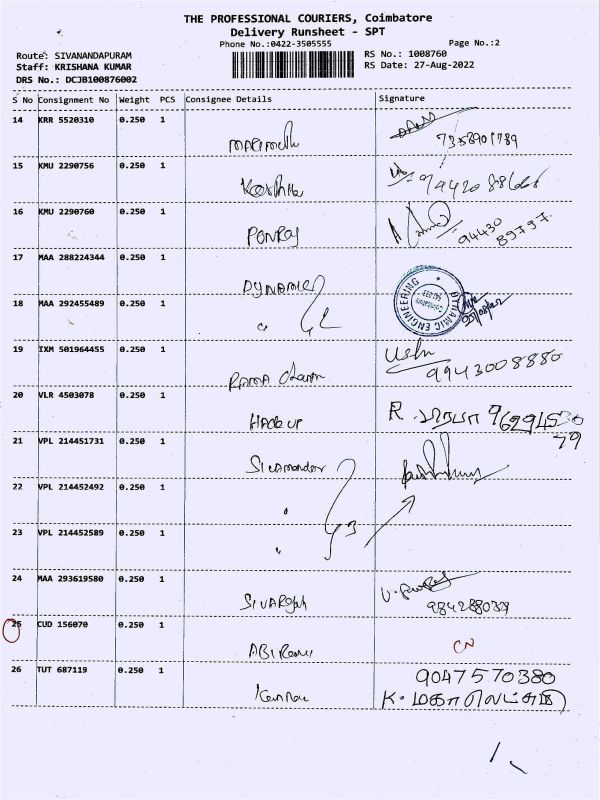 THE PROFESSIONAL COURIERS, Coimbatore
Delivery Runsheet - SPT
Phone No.:0422-3505555
Page No.:2
Route: SIVANANDAPURAM
Staff: KRISHANA KUMAR
DRS No.: DCJB100876002
RS No.: 1008760
RS Date: 27-Aug-2022
S No Consignment No Weight PCS Consignee Details Signature
14 KRR 5520310 0.250 1
7358901789
15 KMU 2290756 0.250 1
16 KMU 2290760 0.250 1
PONRAJ
94430
89797
17 MAA 288224344 0.250 1
DYNAMIC
DYNAMIC ENGINEERING
18 MAA 292455489 0.250 1
19 IXM 501964455 0.250 1
RAMA
Usha
9943008880
20 VLR 4503078 0.250 1
HAOEUP
R.
21 VPL 214451731 0.250 1
22 VPL 214452492 0.250 1
23 VPL 214452589 0.250 1
3
24 MAA 293619580 0.250 1
SIVARajah
25 CUD 156070 0.250 1
ABIRami
CN
26 TUT 687119 0.250 1
Kannan
9047570380
K. மகாலெட்சுமி